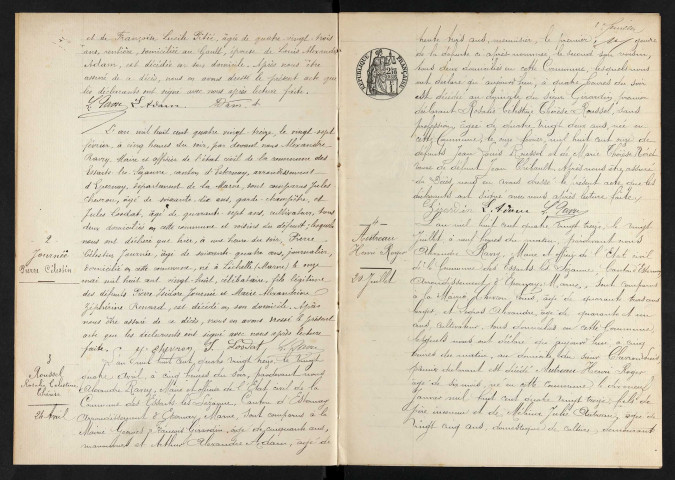 et de Françoise Lucile Pitié, âgée de quatre-vingt-trois
ans, rentière, domiciliée au Gault, épouse de Louis Alexandre
Adam, est décédée en son domicile. Après nous être
assuré de ce décès, nous en avons dressé le présent acte que
les déclarants ont signé avec nous après lecture faite.
L. Adam
L'an mil huit cent quatre vingt treize, le vingt-sept
février, à cinq heures du soir, par devant nous Alexandre
Ravry, Maire et officier de l'état civil de la commune des
Essarts-lès-Sézanne, canton d'Esternay, arrondissement
d'Epernay, département de la Marne, sont comparus Jules
Chevron, âgé de soixante-dix ans, garde-champêtre, et
Jules Londat, âgé de quarante-sept ans, cultivateur, tous
deux domiciliés en cette commune et voisins du défunt, lesquels
nous ont déclaré que hier, à une heure du soir, Pierre
2
Jorenée
Pierre Célestin
Célestin Jorenée, âgé de soixante quatre ans, journalier,
domicilié en cette commune, né à (Marne) le onze
mai mil huit cent vingt-huit, célibataire, fils légitime
des défunts Pierre Isidore Jorenée et Marie Alexandrine
Zéphirine Renard, est décédé en son domicile. Après
nous être assuré de ce décès, nous en avons dressé le présent
acte que les déclarants ont signé avec nous après lecture
faite. Chevron J. Londat
3
Roussel
Rosalie Célestine
Thérèse
24 Avril
L'an mil huit cent quatre vingt treize le vingt
quatre Avril, à cinq heures du soir, pardevant nous
Alexandre Ravry, Maire et officier de l'Etat civil de la
Commune des Essarts les Sézanne, Canton d'Esternay
arrondissement d'Epernay, Marne, sont comparus à la
Mairie Girardin, âgé de cinquante ans,
et Arthur Alexandre Adam, âgé de
2e feuillet
RÉPUBLIQUE FRANÇAISE
trente sept ans, menuisier, le premier gendre
de la défunte ci après nommée, le second son voisin,
tous deux domiciliés en cette Commune, lesquels nous
ont déclaré qu'aujourd'hui, à quatre heures du soir
est décédée au domicile du sieur Girardin, premier
déclarant Rosalie Célestine Thérèse Roussel, sans
profession, âgée de quatre vingt deux ans, née en
cette Commune, le mil huit cent onze de
défunts Jean Louis Roussel et de Marie Thérèse
veuve de défunt Jean Thibault. Après nous être assuré
du Décès, nous en avons dressé le présent acte que les
déclarants ont signé avec nous après lecture faite.
Girardin L. Adam
4
Autreau
Henri Roger
20 Juillet
L'an mil huit cent quatre vingt treize, le vingt
Juillet à sept heures du matin, pardevant nous
Alexandre Ravry, Maire et officier de l'Etat civil
de la Commune des Essarts les Sézanne, Canton d'Esternay
arrondissement d'Epernay, Marne, sont comparus
à la Mairie ans, âgé de quarante trois ans
Alexandre, âgé de quarante et un
ans, cultivateur, tous domiciliés en cette Commune
lesquels nous ont déclaré qu'aujourd'hui à cinq
heures du matin, au domicile du sieur
premier déclarant est décédé Autreau Henri Roger
âgé de dix mois, né en cette commune le dix neuf
janvier mil huit cent quatre vingt treize, fils de
père inconnu et de Autreau, âgée de
vingt cinq ans, domestique de culture, demeurant